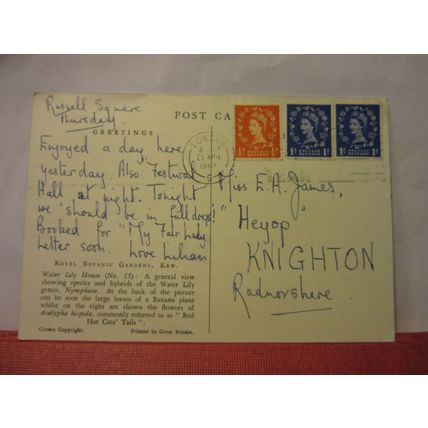 Russell Square
Thursday.
POST CA
GREETINGS
Enjoyed a day here
yesterday. Also Festival
Hall at night. Tonight
we should be in full dress!
Booked for "My Fair Lady"
Letter soon. Love Lilian
ROYAL BOTANIC GARDENS, KEW.
Water Lily House (No. 15): A general view
showing species and hybrids of the Water Lily
genus, Nymphaea. At the back of the picture
can be seen the large leaves of a Banana plant
whilst on the right are shown the flowers of
Acalypha hispida, commonly referred to as "Red
Hot Cats' Tails".
Crown Copyright.
Printed in Great Britain.
LONDON
21 APR
½d
1d
1d
Miss E. A. James,
"Heyop"
KNIGHTON
Radnorshire.